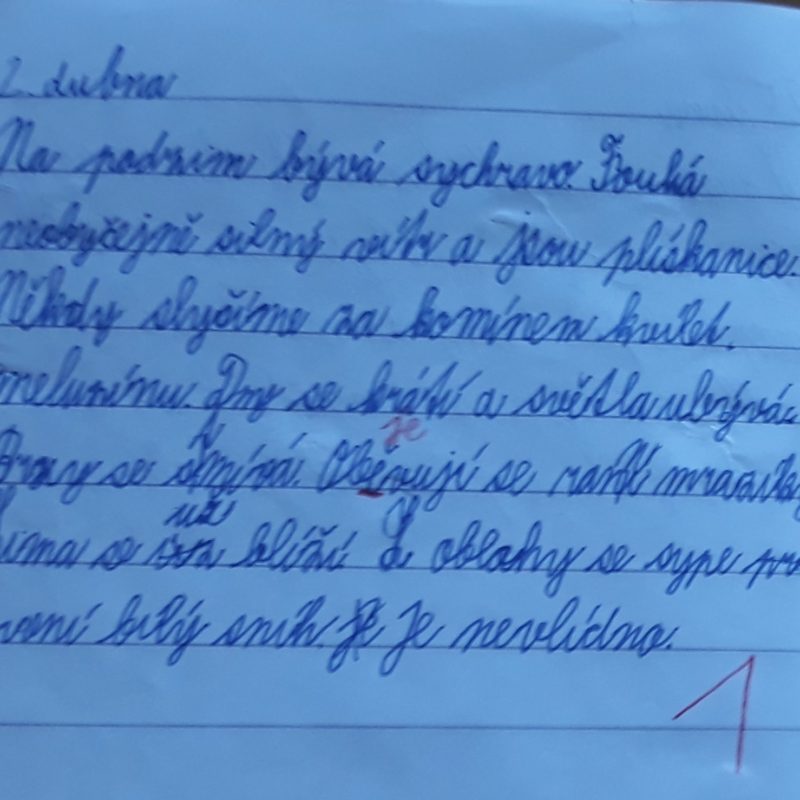 2. dubna
Na podzim bývá sychravo. Fouká
neobyčejně silný vítr a jsou plískanice.
Někdy slyšíme za komínem kvílet
meluzínu. Dny se krátí a světla ubývá.
Brzy se stmívá. Oběvují se ranní mrazíky
je
Zima se už blíží. Z oblohy se sype pr
vní bílý sníh. Je nevlídno.
1